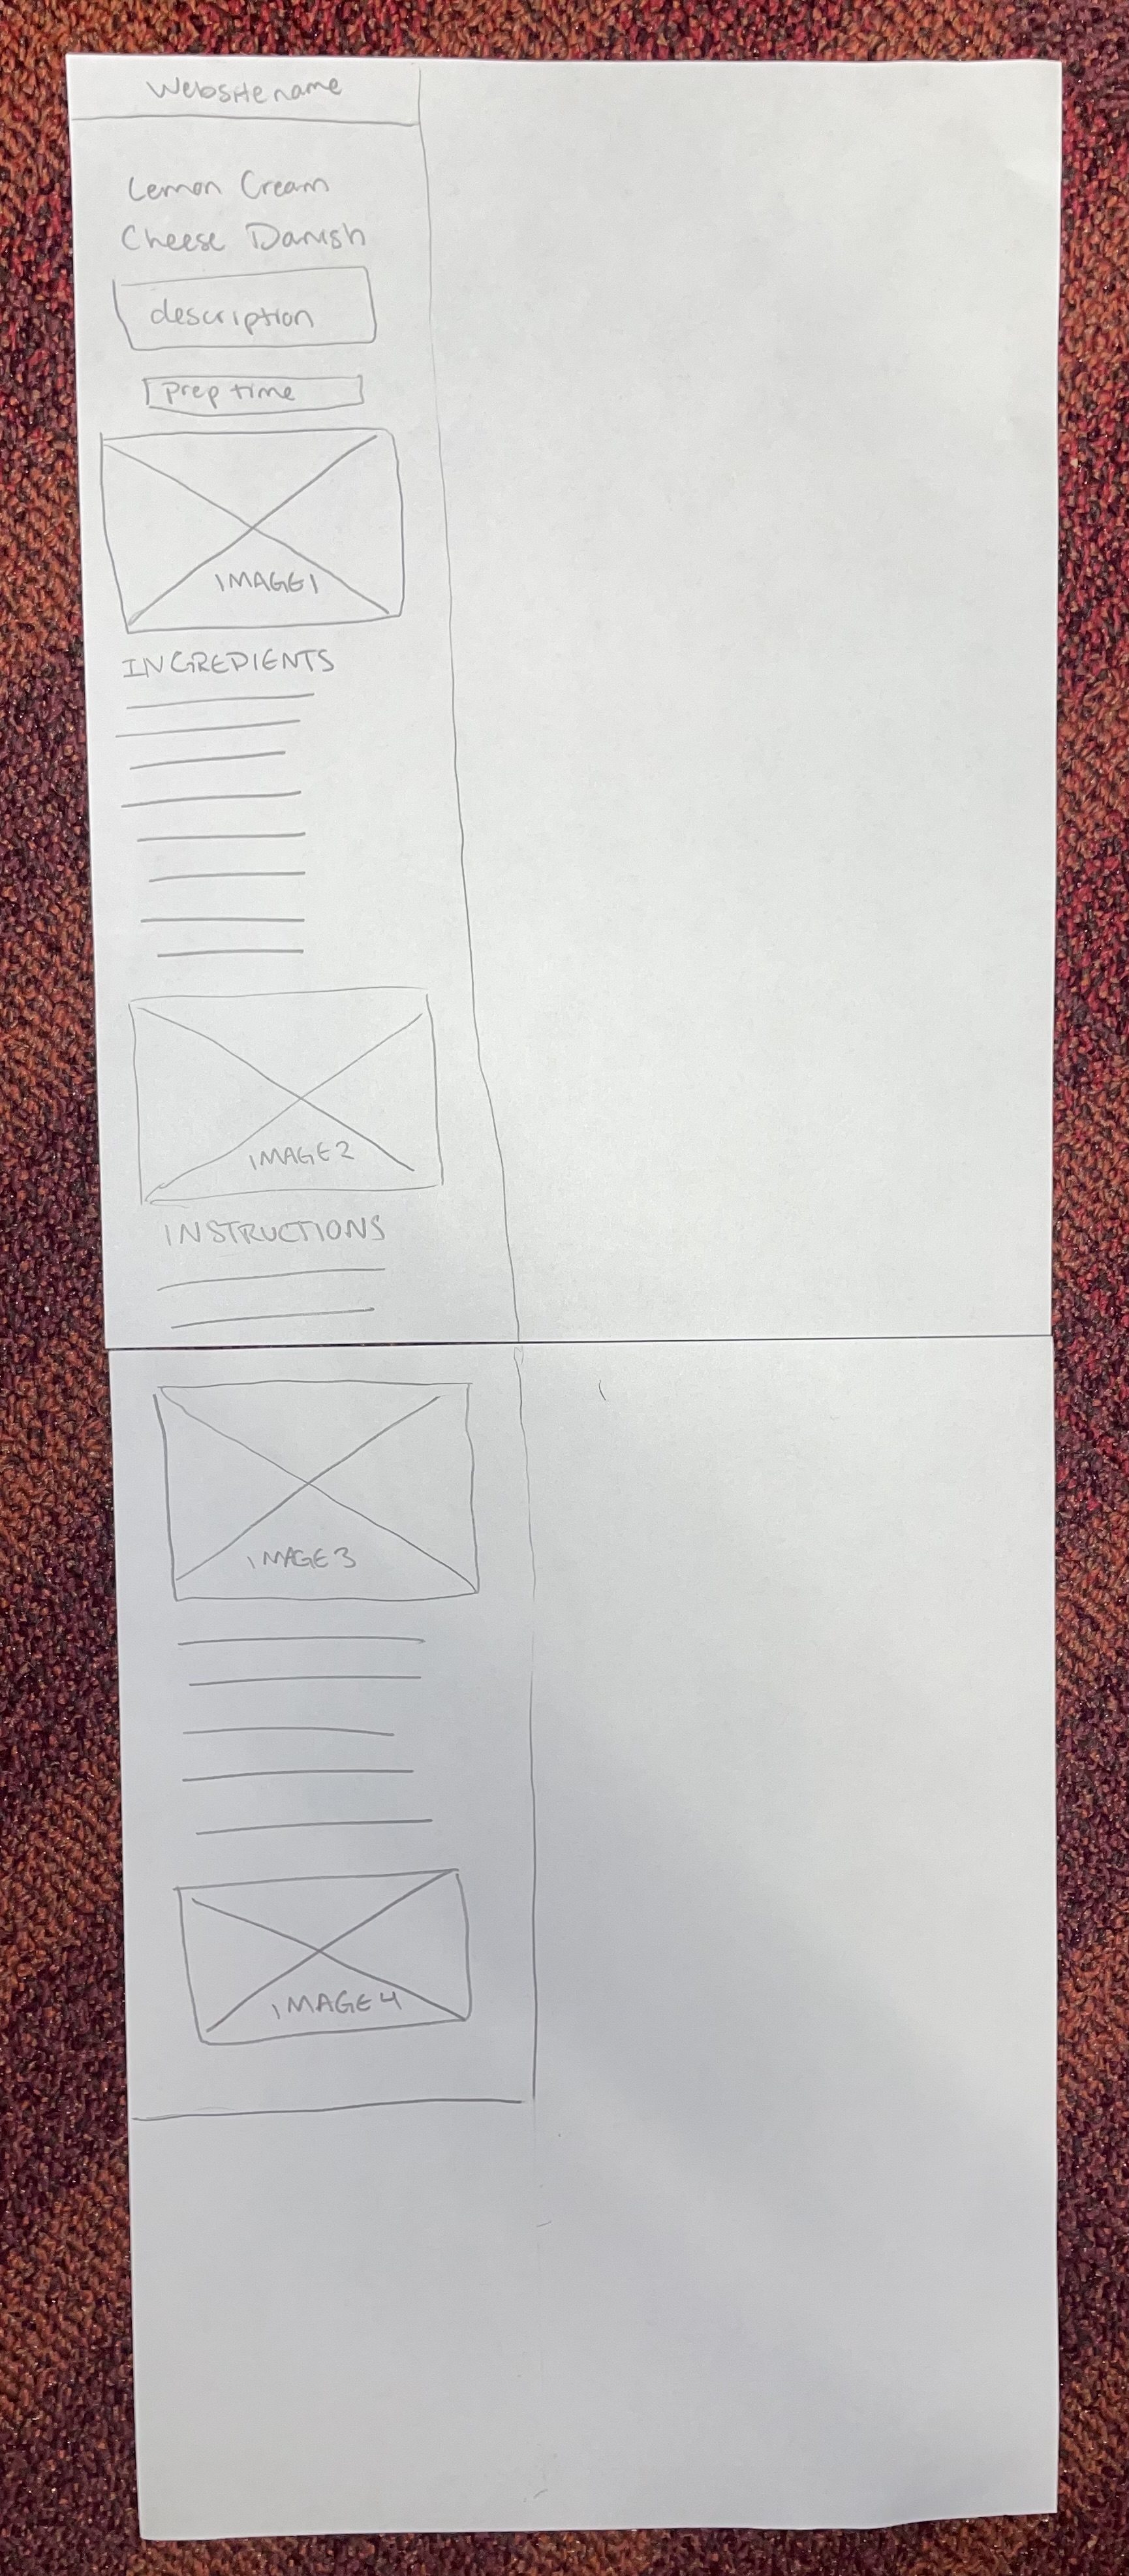 Website name
Lemon Cream
Cheese Danish
description
prep time
IMAGE1
INGREDIENTS
IMAGE2
INSTRUCTIONS
IMAGE3
IMAGE4